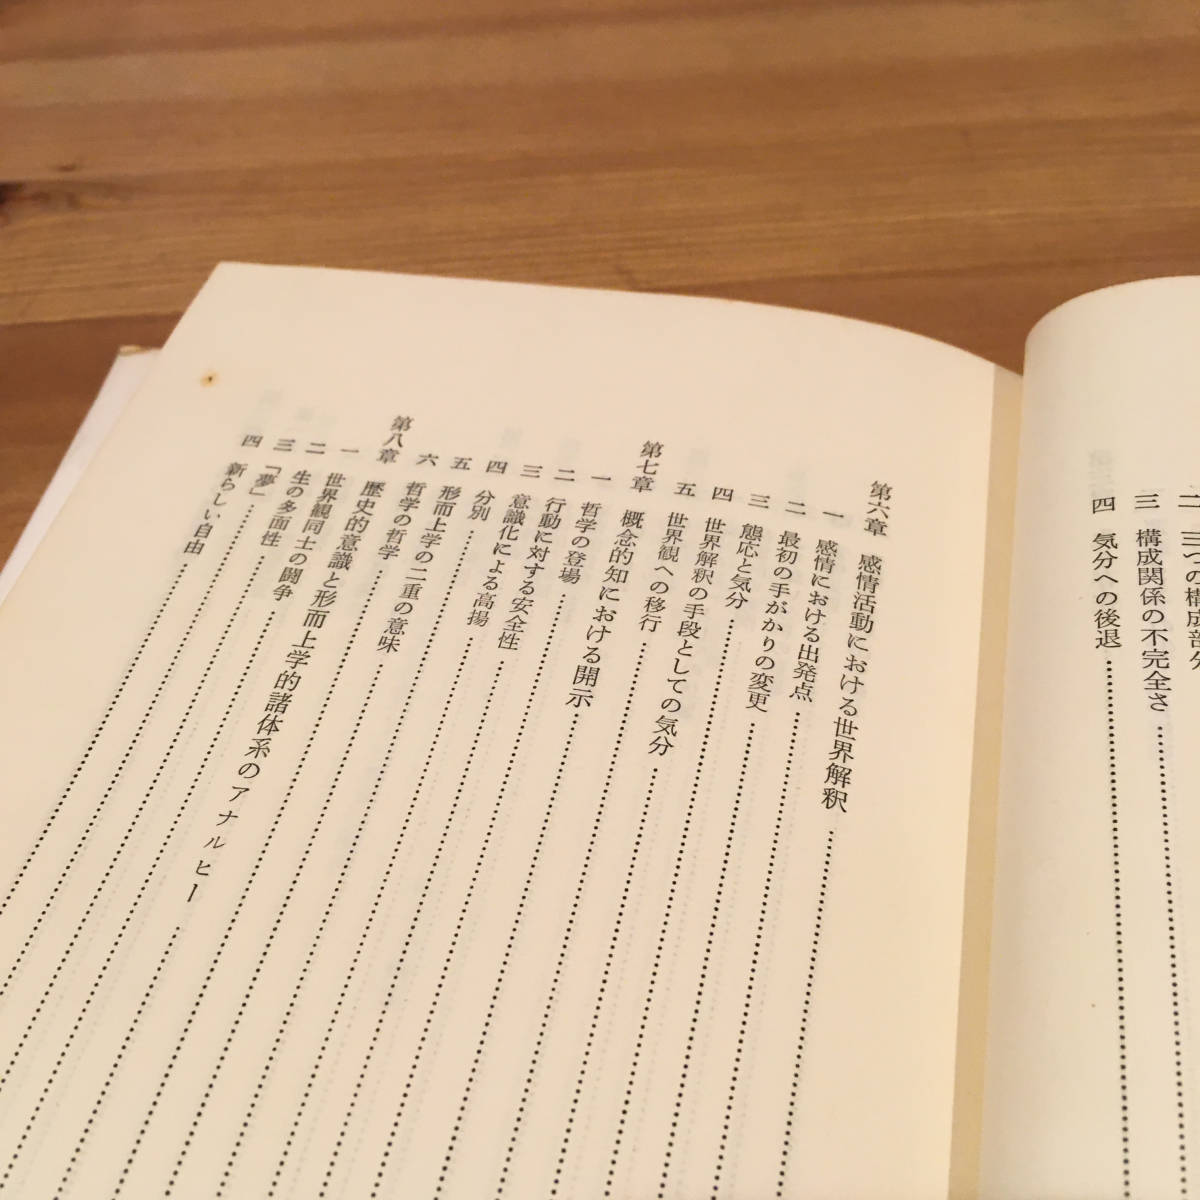 二 三つの構成部分
三 構成関係の不完全さ
四 気分への後退
第六章 感情活動における世界解釈
一 感情における出発点
二 最初の手がかりの変更
三 態応と気分
四 世界解釈の手段としての気分
五 世界観への移行
第七章 概念的知における開示
一 哲学の登場
二 行動に対する安全性
三 意識化による高揚
四 分別
五 形而上学の二重の意味
六 哲学の哲学
第八章 歴史的意識と形而上学的諸体系のアナルヒー
一 世界観同士の闘争
二 生の多面性
三 「夢」
四 新らしい自由